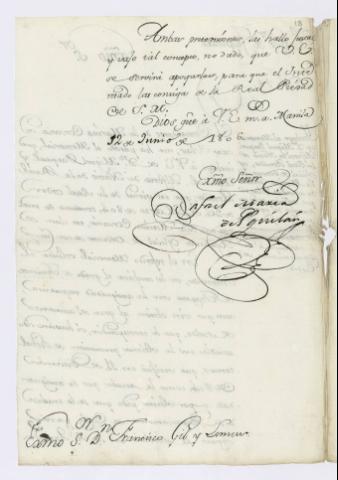 18
Ambas pretensiones, las hallo justas
y vajo tal concepto, no dudo, que V. E.
se servirá apoyarlas, para que el Inte
resado las consiga de la Real Piedad
de S. M.
Dios gue. á V. E. m. a. Manila
12 de Junio de 180
Exmo. Señor
Rafael Maria
de Aguilar
Exmo S. D. Francisco Gil y Lemus